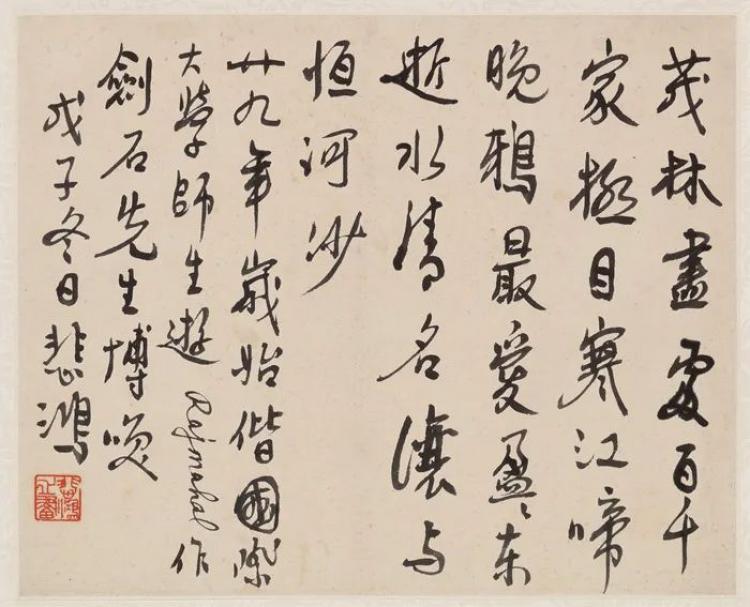 茂林盡處百千
家極目寒江啼
晚鴉最愛盈〻東
逝水清名讓与
恒河沙
廿九年歲始偕國際
大學師生遊 Rajmahal 作
劍石先生博咲
戊子冬日悲鴻